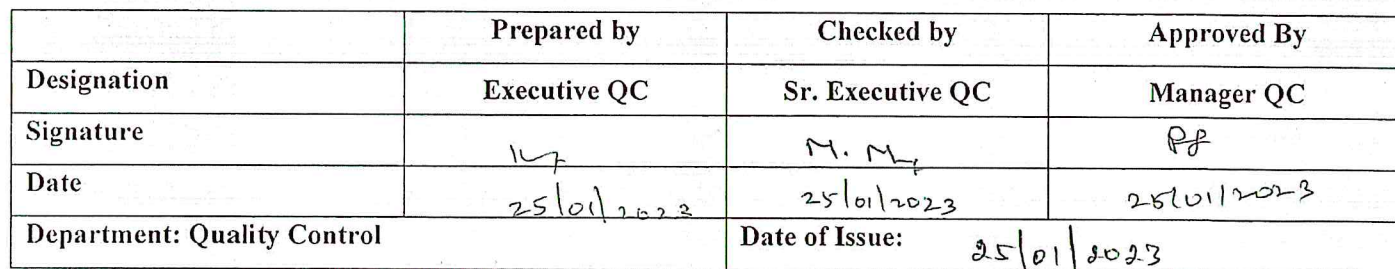 Prepared by Checked by Approved By
Designation Executive QC Sr. Executive QC Manager QC
Signature M. M.
Date 25/01/2023 25/01/2023 25/01/2023
Department: Quality Control Date of Issue: 25/01/2023